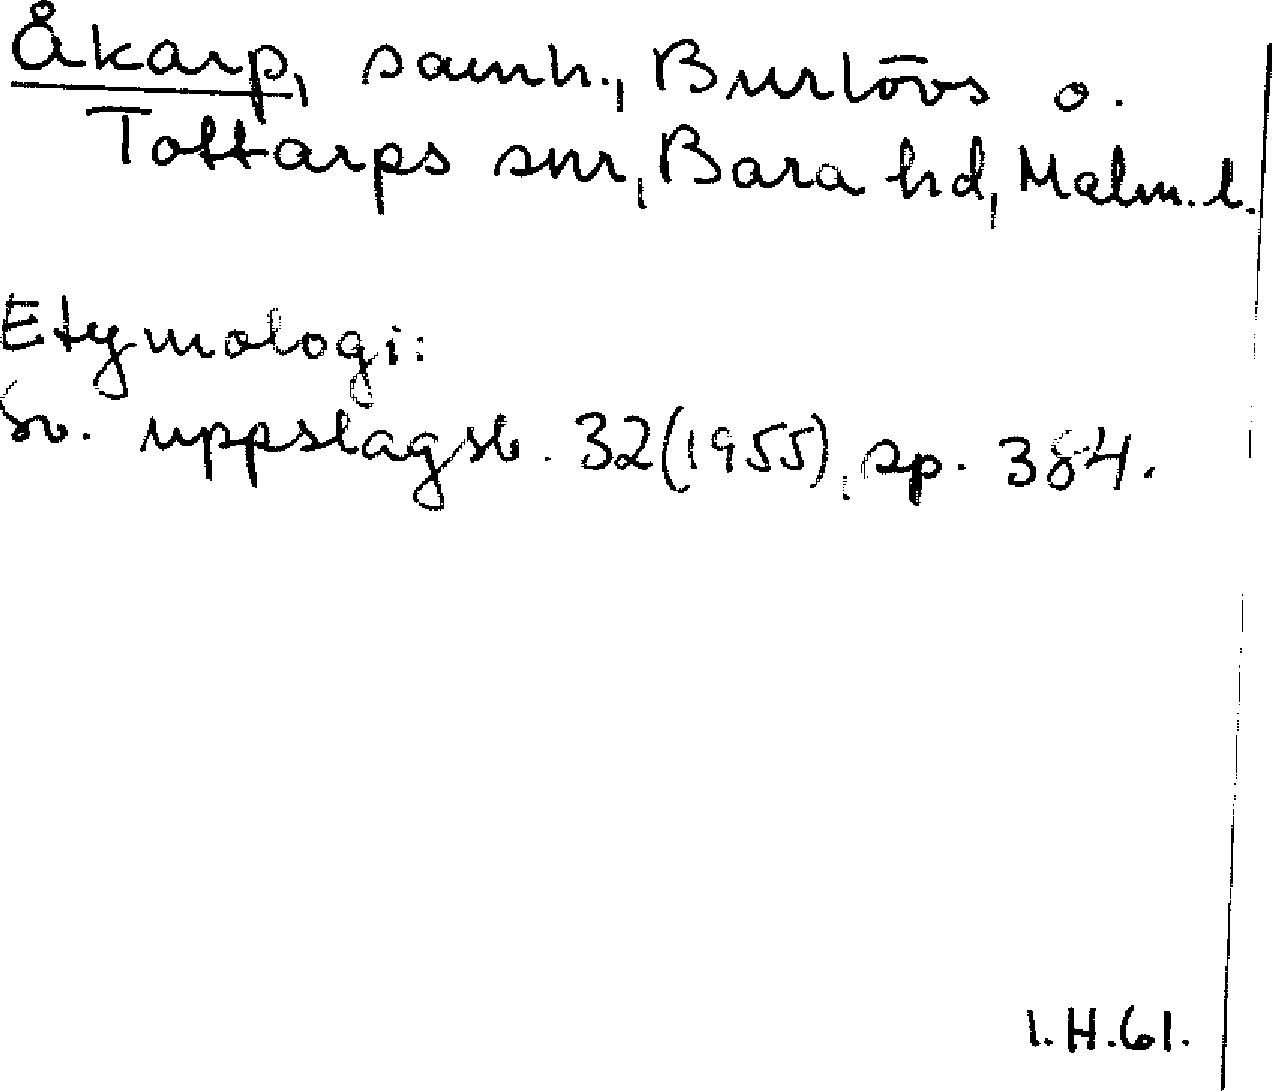 Åkarp, samh., Burlövs o.
Tottarps snr, Bara hd, Malm. l.
Etymologi:
Sv. uppslagsb. 32(1955), sp. 384.
I.H.61.